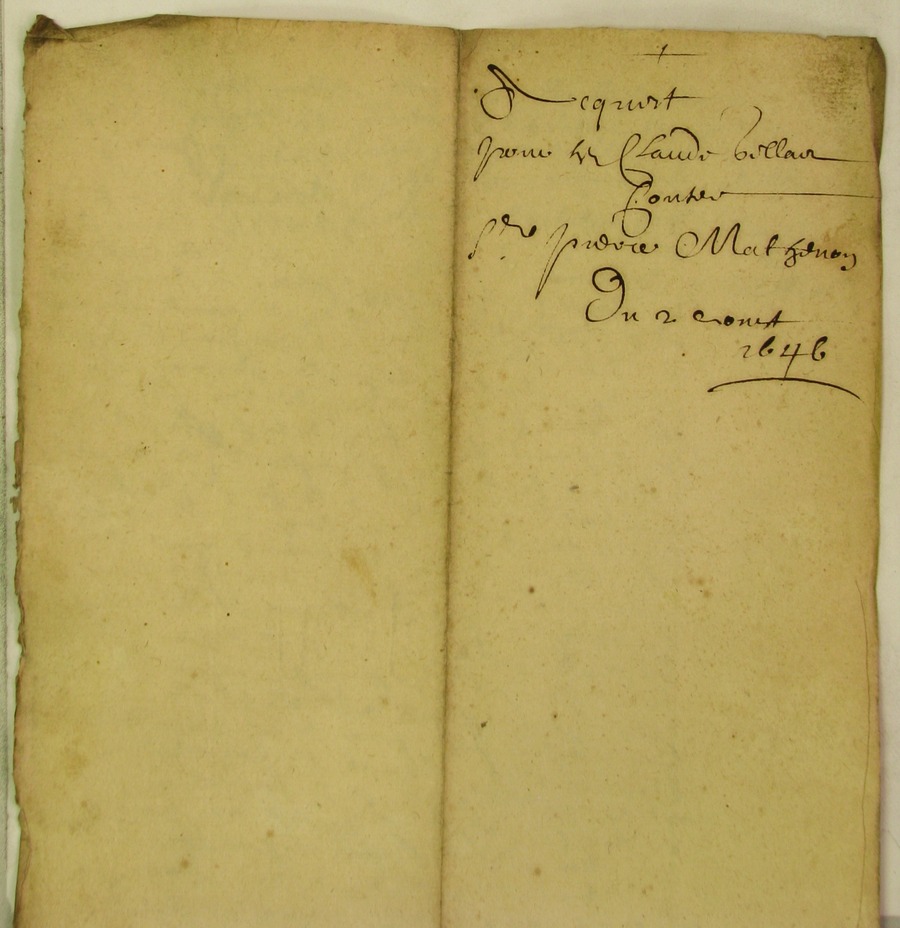 Acquist
pour sr Claude Villar
Contre
Sr pierre Mathenon
Du 2 aoust
1646